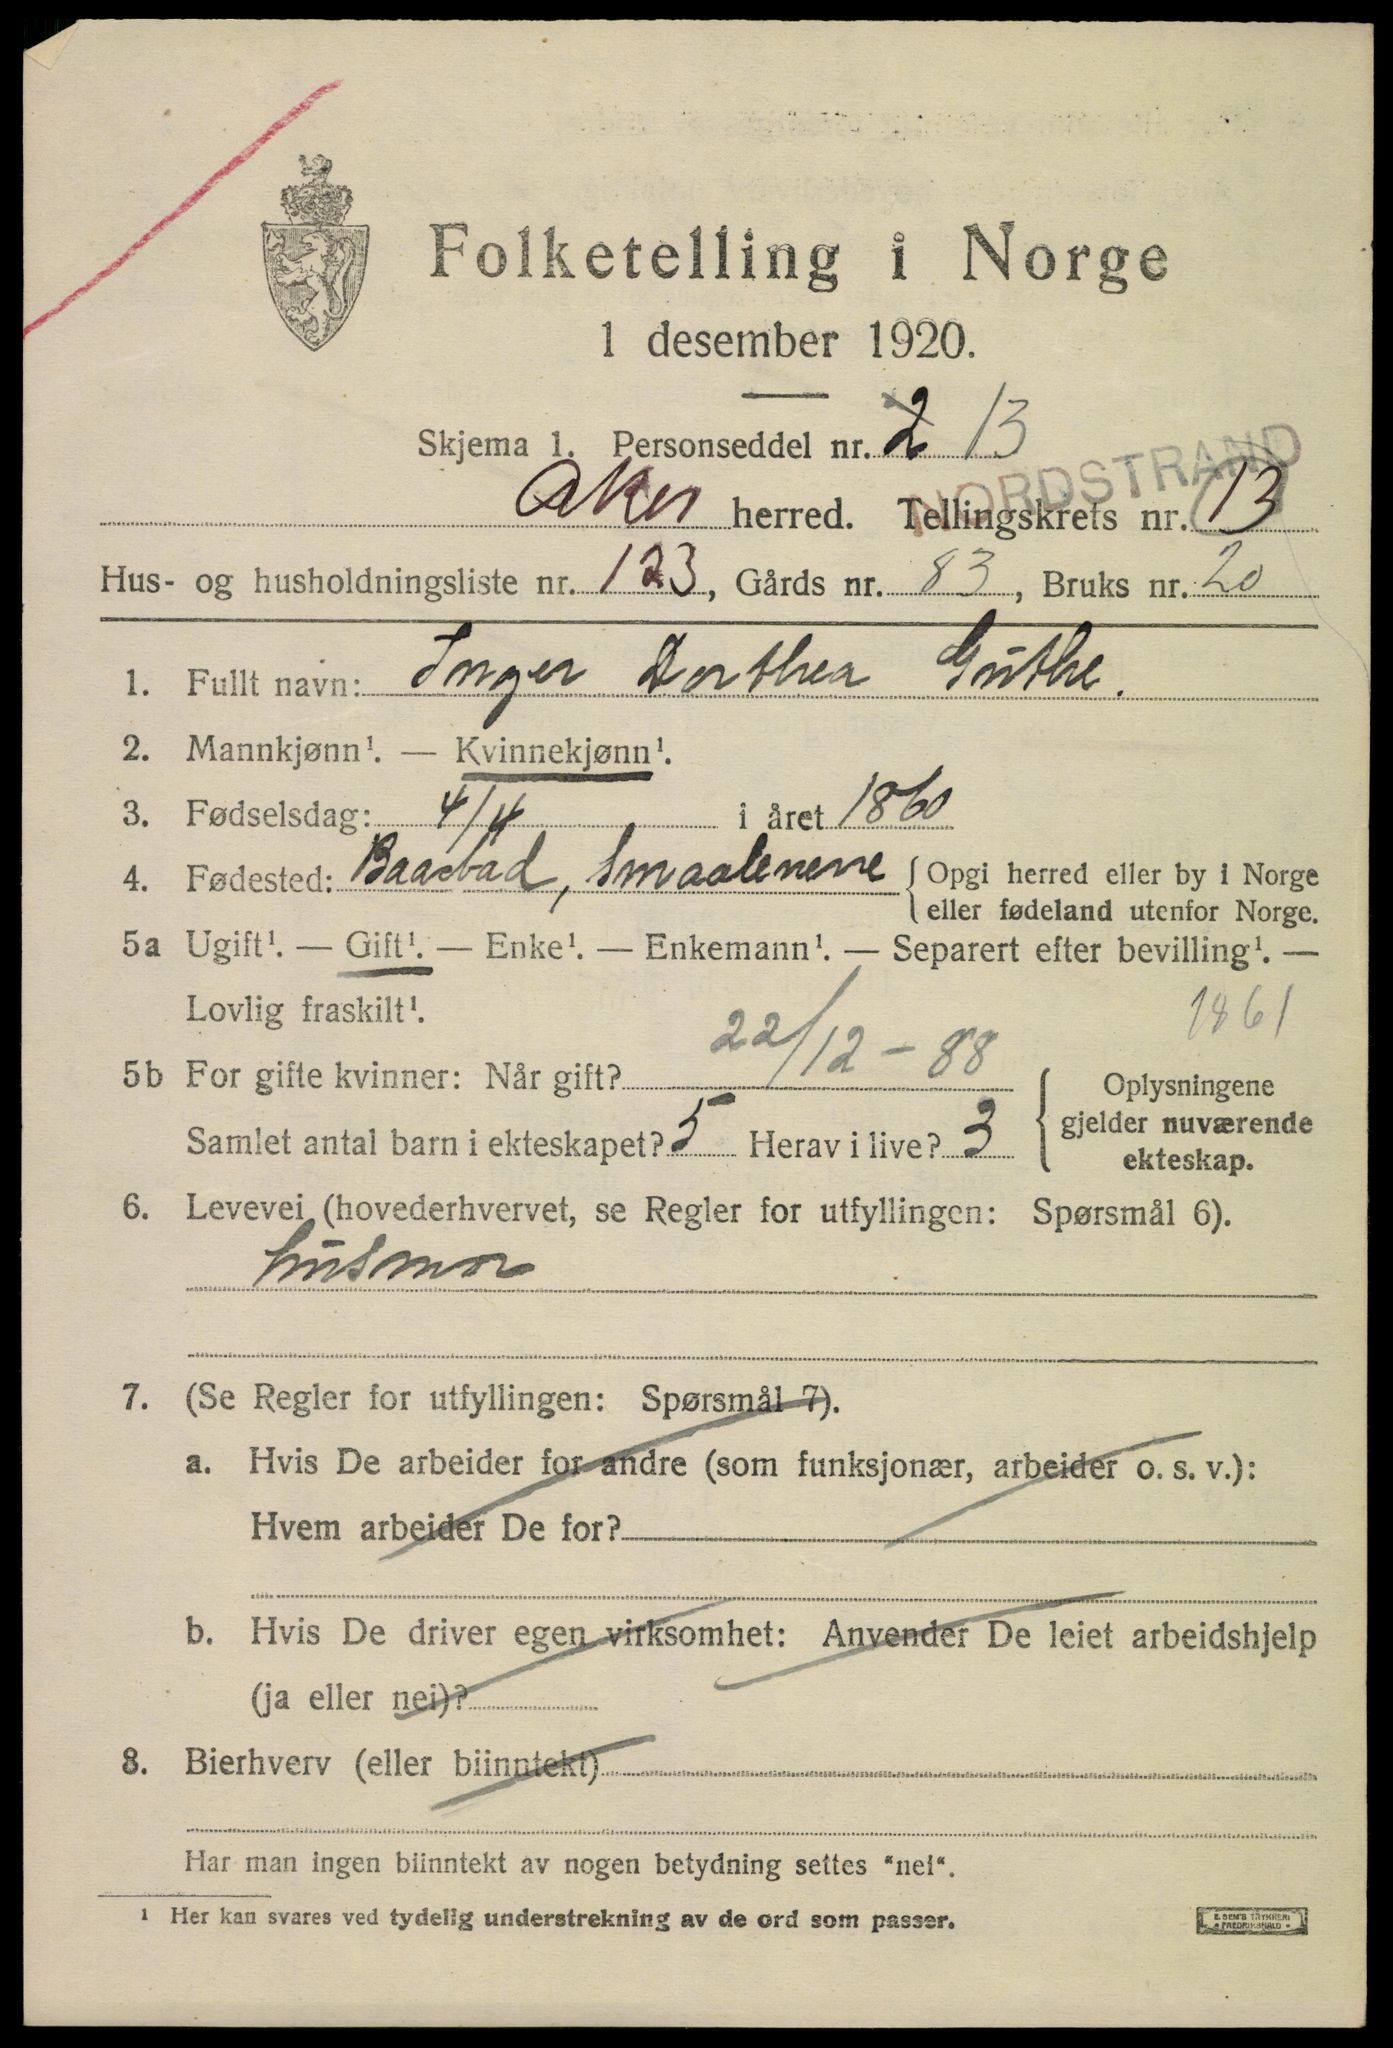 Folketelling i Norge
1 desember 1920.
Skjema 1. Personseddel nr. 2 13
NORDSTRAND
Aker herred. Tellingskrets nr. 13
Hus- og husholdningsliste nr. 123, Gårds nr. 83, Bruks nr. 20
1. Fullt navn: Inger Dorthea Güthe.
2. Mannkjønn¹. — Kvinnekjønn¹.
3. Fødselsdag: 4/4 i året 1860
4. Fødested: Baastad, Smaalenene { Opgi herred eller by i Norge
eller fødeland utenfor Norge.
5a Ugift¹. — Gift¹. — Enke¹. — Enkemann¹. — Separert efter bevilling¹. —
Lovlig fraskilt¹.
1861
5b For gifte kvinner: Når gift? 22/12 - 88
Samlet antal barn i ekteskapet? 5 Herav i live? 3
{ Oplysningene
gjelder nuværende
ekteskap.
6. Levevei (hovederhvervet, se Regler for utfyllingen: Spørsmål 6).
husmor
7. (Se Regler for utfyllingen: Spørsmål 7).
a. Hvis De arbeider for andre (som funksjonær, arbeider o. s. v.):
Hvem arbeider De for?
b. Hvis De driver egen virksomhet: Anvender De leiet arbeidshjelp
(ja eller nei)?
8. Bierhverv (eller biinntekt)
Har man ingen biinntekt av nogen betydning settes "nei".
¹ Her kan svares ved tydelig understrekning av de ord som passer.
E. SEM'S TRYKKERI
FREDRIKSHALD